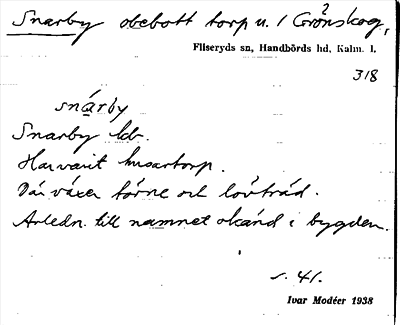 Snarby obebott torp u. 1 Grönskog, ?
Fliseryds sn, Handbörds hd, Kalm. l.
318
snárby
Snarby lds.
Har varit husartorp.
Där växer törne och lövträd.
Anledn. till namnet okänd i bygden.
s. 41.
Ivar Modéer 1938